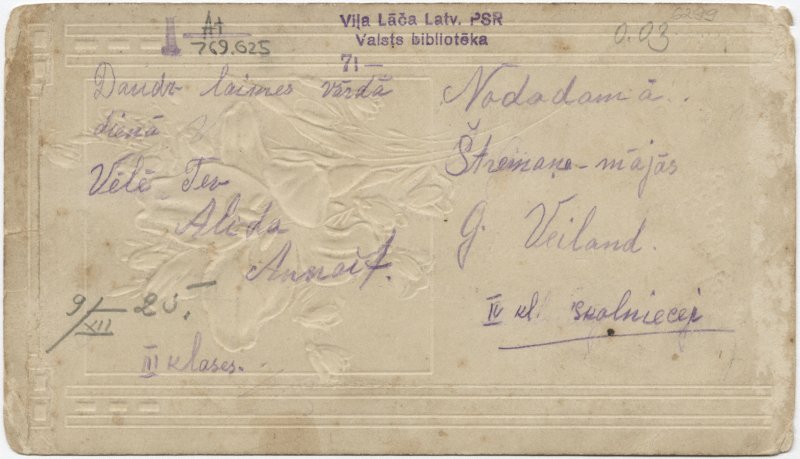 At
769.625
Viļa Lāča Latv. PSR
Valsts bibliotēka
71 —
6299
0.03
Daudz laimes vārdā
dienā
Vēlē Tev
Alida
9/XII 25.
III klases.
Nododamā
Štremaņa-mājās
G. Veiland.
IV kl. skolniecei